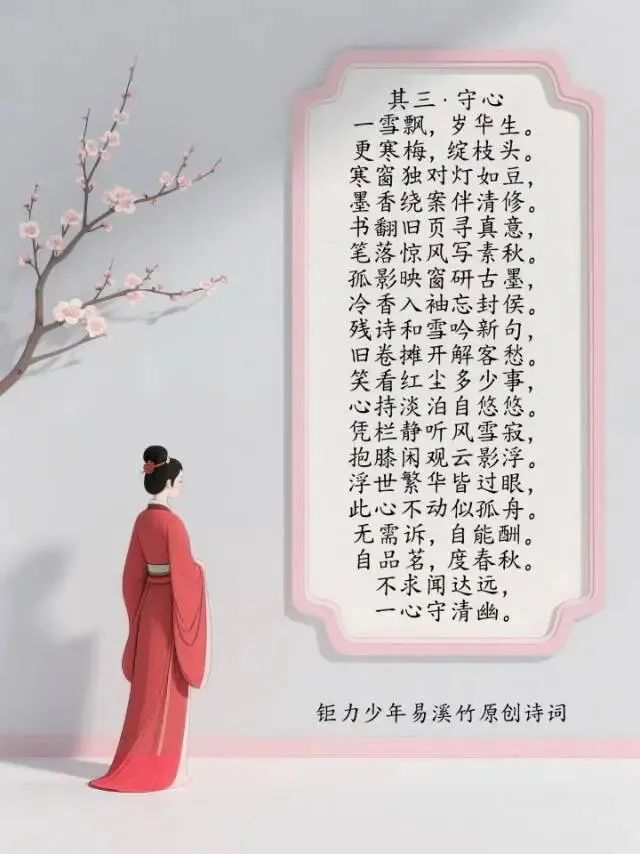 其三·守心
一雪飘，岁华生。
更寒梅，绽枝头。
寒窗独对灯如豆，
墨香绕案伴清修。
书翻旧页寻真意，
笔落惊风写素秋。
孤影映窗研古墨，
冷香入袖忘封侯。
残诗和雪吟新句，
旧卷摊开解客愁。
笑看红尘多少事，
心持淡泊自悠悠。
凭栏静听风雪寂，
抱膝闲观云影浮。
浮世繁华皆过眼，
此心不动似孤舟。
无需诉，自能酬。
自品茗，度春秋。
不求闻达远，
一心守清幽。
钜力少年易溪竹原创诗词